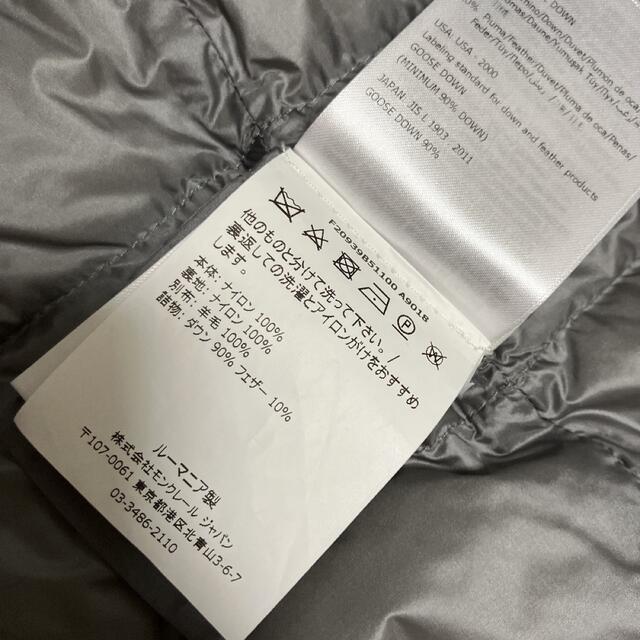 DOWN
USA. USA. 2000
Labeling standard for down and feather products
GOOSE DOWN
(MINIMUM 90% DOWN)
JAPAN. JIS L 1903. 2011
GOOSE DOWN 90%
F20939B51100 A9018
他のものと分けて洗って下さい。/
裏返しての洗濯とアイロンがけをおすすめ
します。
本体: ナイロン 100%
裏地: ナイロン 100%
別布: 羊毛 100%
詰物: ダウン 90% フェザー 10%
ルーマニア製
株式会社モンクレール ジャパン
〒107-0061 東京都港区北青山3-6-7
03-3486-2110